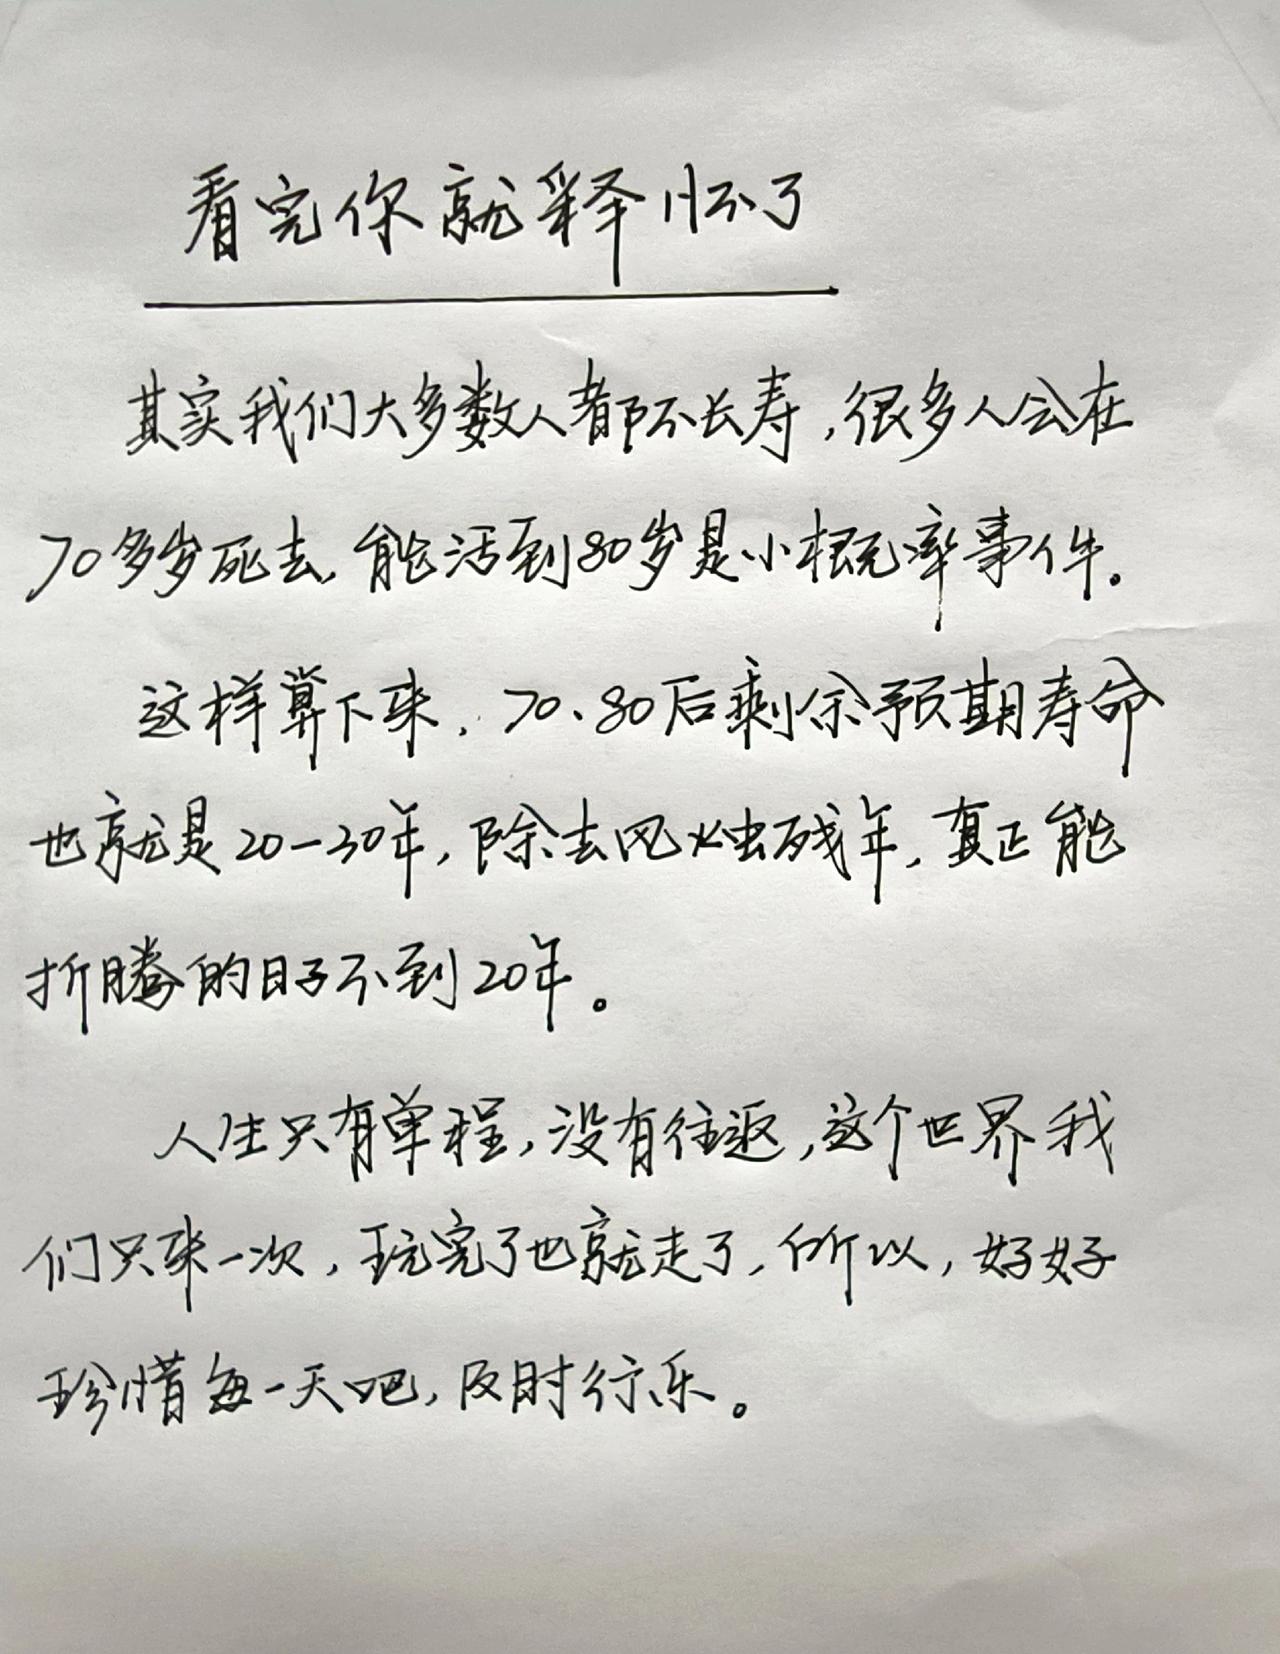 看完你就释怀了
其实我们大多数人都不长寿,很多人会在
70多岁死去,能活到80岁是小概率事件。
这样算下来,70、80后剩余预期寿命
也就是20-30年,除去风烛残年,真正能
折腾的日子不到20年。
人生只有单程,没有往返,这个世界我
们只来一次,玩完了也就走了,所以,好好
珍惜每一天吧,及时行乐。